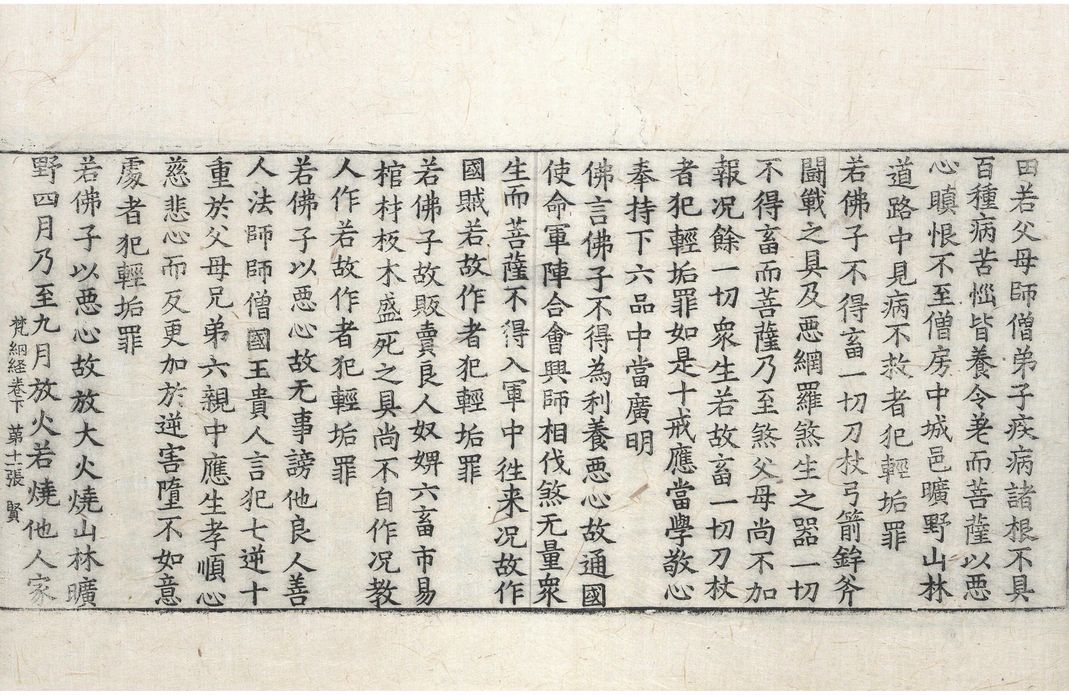 田若父母師僧弟子疾病諸根不具
百種病苦惱皆養令差而菩薩以悪
心瞋恨不至僧房中城邑曠野山林
道路中見病不救者犯輕垢罪
若佛子不得畜一切刀杖弓箭鉾斧
鬪戰之具及悪網羅煞生之器一切
不得畜而菩薩乃至煞父母尚不加
報况餘一切衆生若故畜一切刀杖
者犯輕垢罪如是十戒應當學敬心
奉持下六品中當廣明
佛言佛子不得為利養悪心故通國
使命軍陣合會興師相伐煞无量衆
生而菩薩不得入軍中徃来况故作
國賊若故作者犯輕垢罪
若佛子故販賣良人奴婢六畜市易
棺材板木盛死之具尚不自作况教
人作若故作者犯輕垢罪
若佛子以悪心故无事謗他良人善
人法師師僧國王貴人言犯七逆十
重於父母兄弟六親中應生孝順心
慈悲心而反更加於逆害墮不如意
處者犯輕垢罪
若佛子以悪心故放大火燒山林曠
野四月乃至九月放火若燒他人家
梵網経卷下 第十一張 賢